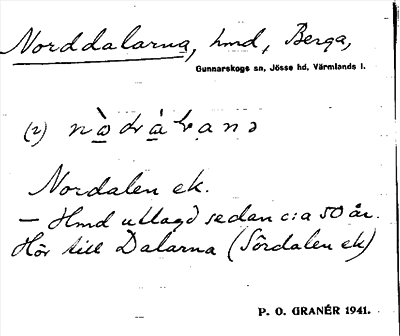 Norddalarna, hmd, Berga,
Gunnarskogs sn, Jösse hd, Värmlands l.
(2)
Nordalen ek.
– Hmd utlagd sedan c:a 50 år.
Hör till Dalarna (Sördalen ek)
P. O. GRANÉR 1941.